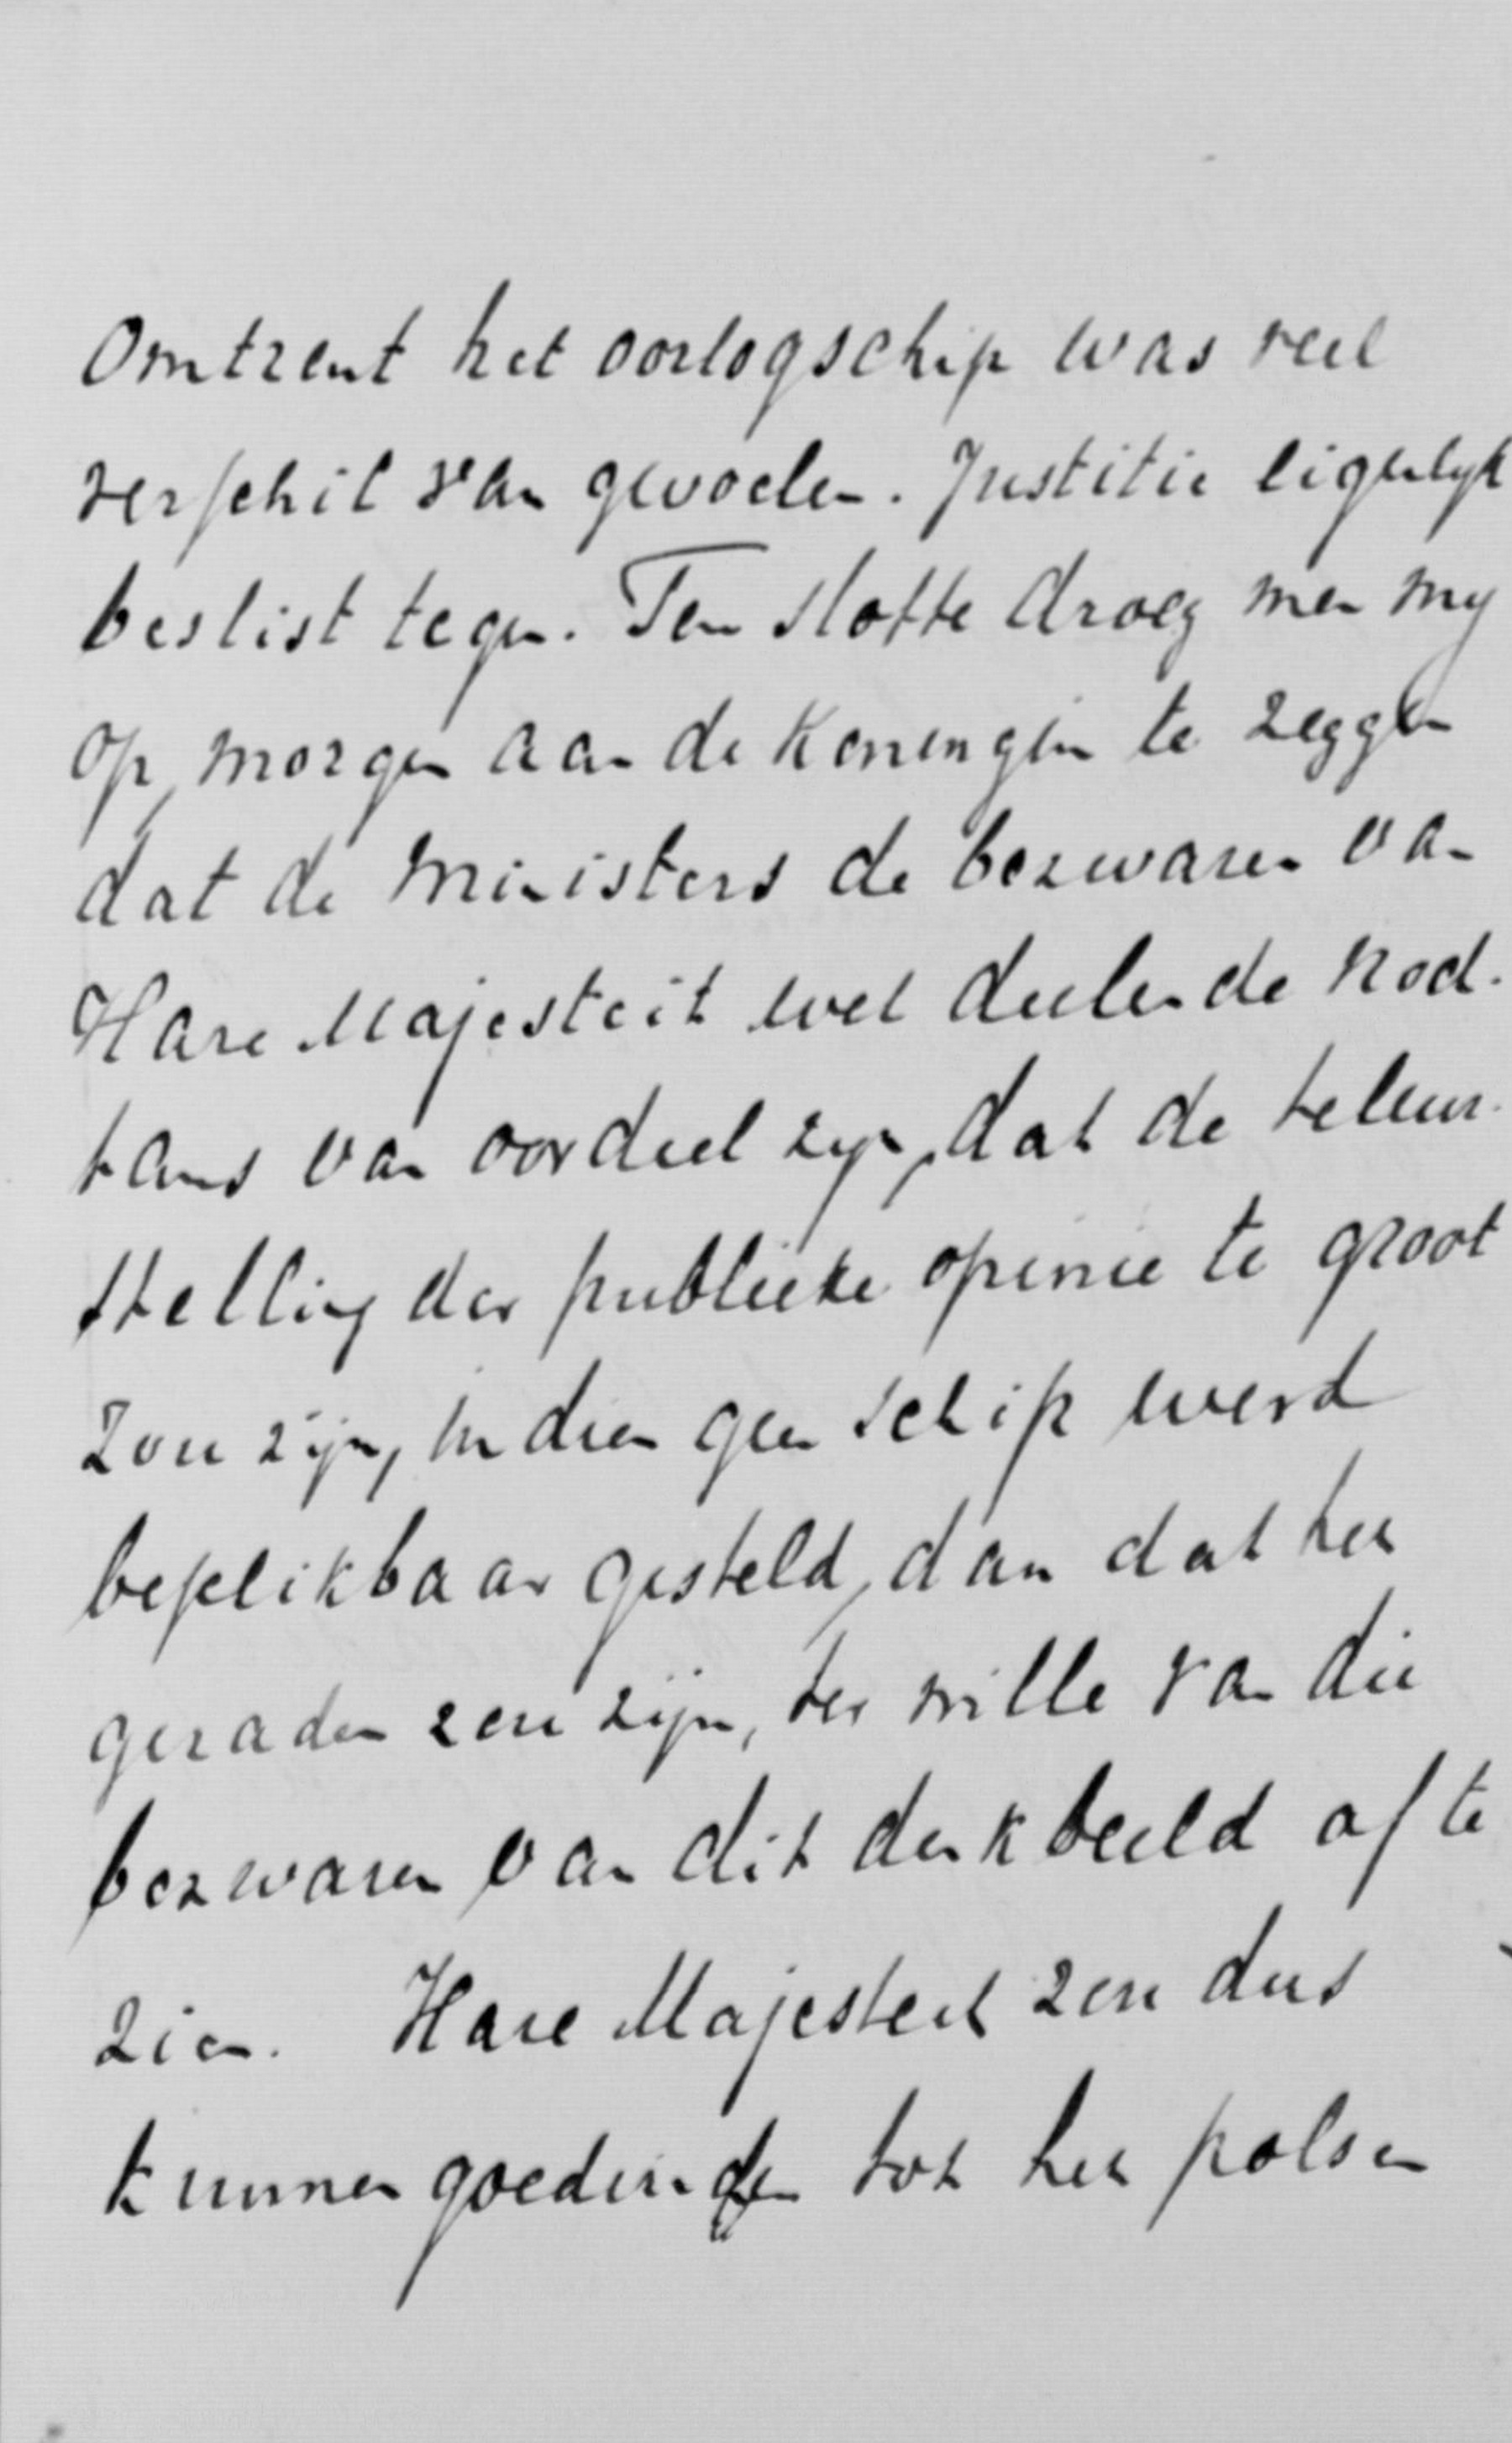 Omtrent het oorlogschip was veel
verschil van gevoelen. Justitie eigenlyk
beslist tegen. Ten slotte droeg men my
op, morgen aan de Koningin te zeggen
dat de Ministers de bezwaren van
Hare Majesteit wel deelende noch-
tans van oordeel zyn, dat de teleur-
stelling der publieke opinie te groot
zou zijn, indien geen schip werd
beschikbaar gesteld, dan dat het
geraden zou zijn, ter wille van die
bezwaren van dit denkbeeld af te
zien. Hare Majesteit zou dus
kunnen goedvinden tot het polsen